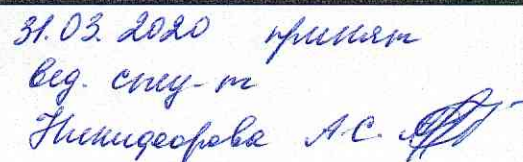 31.03.2020 принят
вед. спец-т
Никифорова А.С.